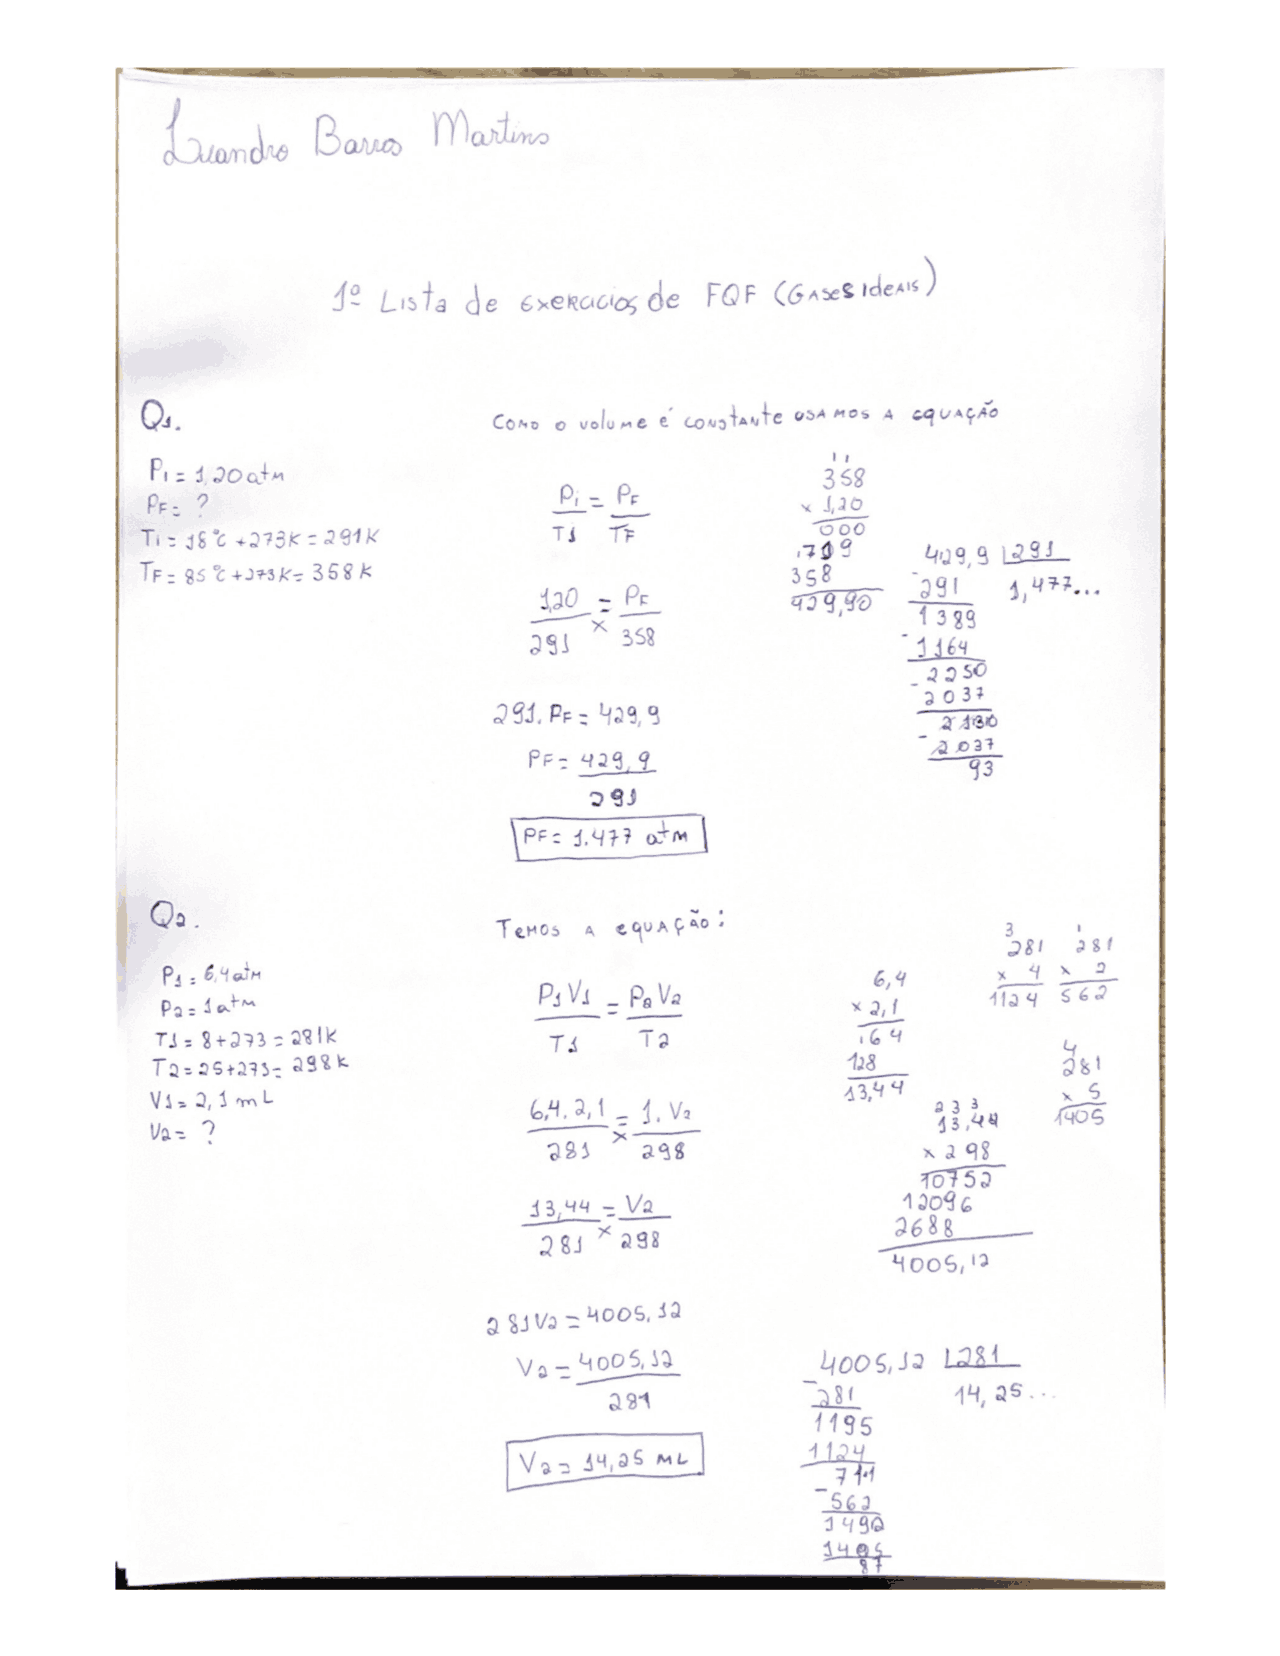 Luandro Barros Martins
1º Lista de exercicios de FQF (Gases Ideais)
Q1.
Pi = 1,20 atm
PF = ?
Ti = 18°C + 273K = 291K
TF = 85°C + 273K = 358K
Como o volume é constante usamos a equação
Pi = PF
T1 TF
1,20 = PF
291 x 358
291. PF = 429,9
PF = 429,9
291
PF = 1.477 atm
11
358
x 1,20
000
719
358
429,90
429,9 291
- 291 1,477...
1389
- 1164
2250
- 2037
2130
- 2037
93
Q2.
P1 = 6,4 atm
P2 = 1 atm
T1 = 8 + 273 = 281K
T2 = 25 + 273 = 298K
V1 = 2,1 mL
V2 = ?
Temos a equação:
P1 V1 = P2 V2
T1 T2
6,4. 2,1 = 1. V2
281 x 298
13,44 = V2
281 x 298
281V2 = 4005,12
V2 = 4005,12
281
V2 = 14,25 mL
6,4
x 2,1
64
128
13,44
3
281
x 4
1124
1
281
x 2
562
4
281
x 5
1405
233
13,44
x 298
10752
12096
2688
4005,12
4005,12 281
- 281 14,25...
1195
1124
711
- 562
1492
1405
87